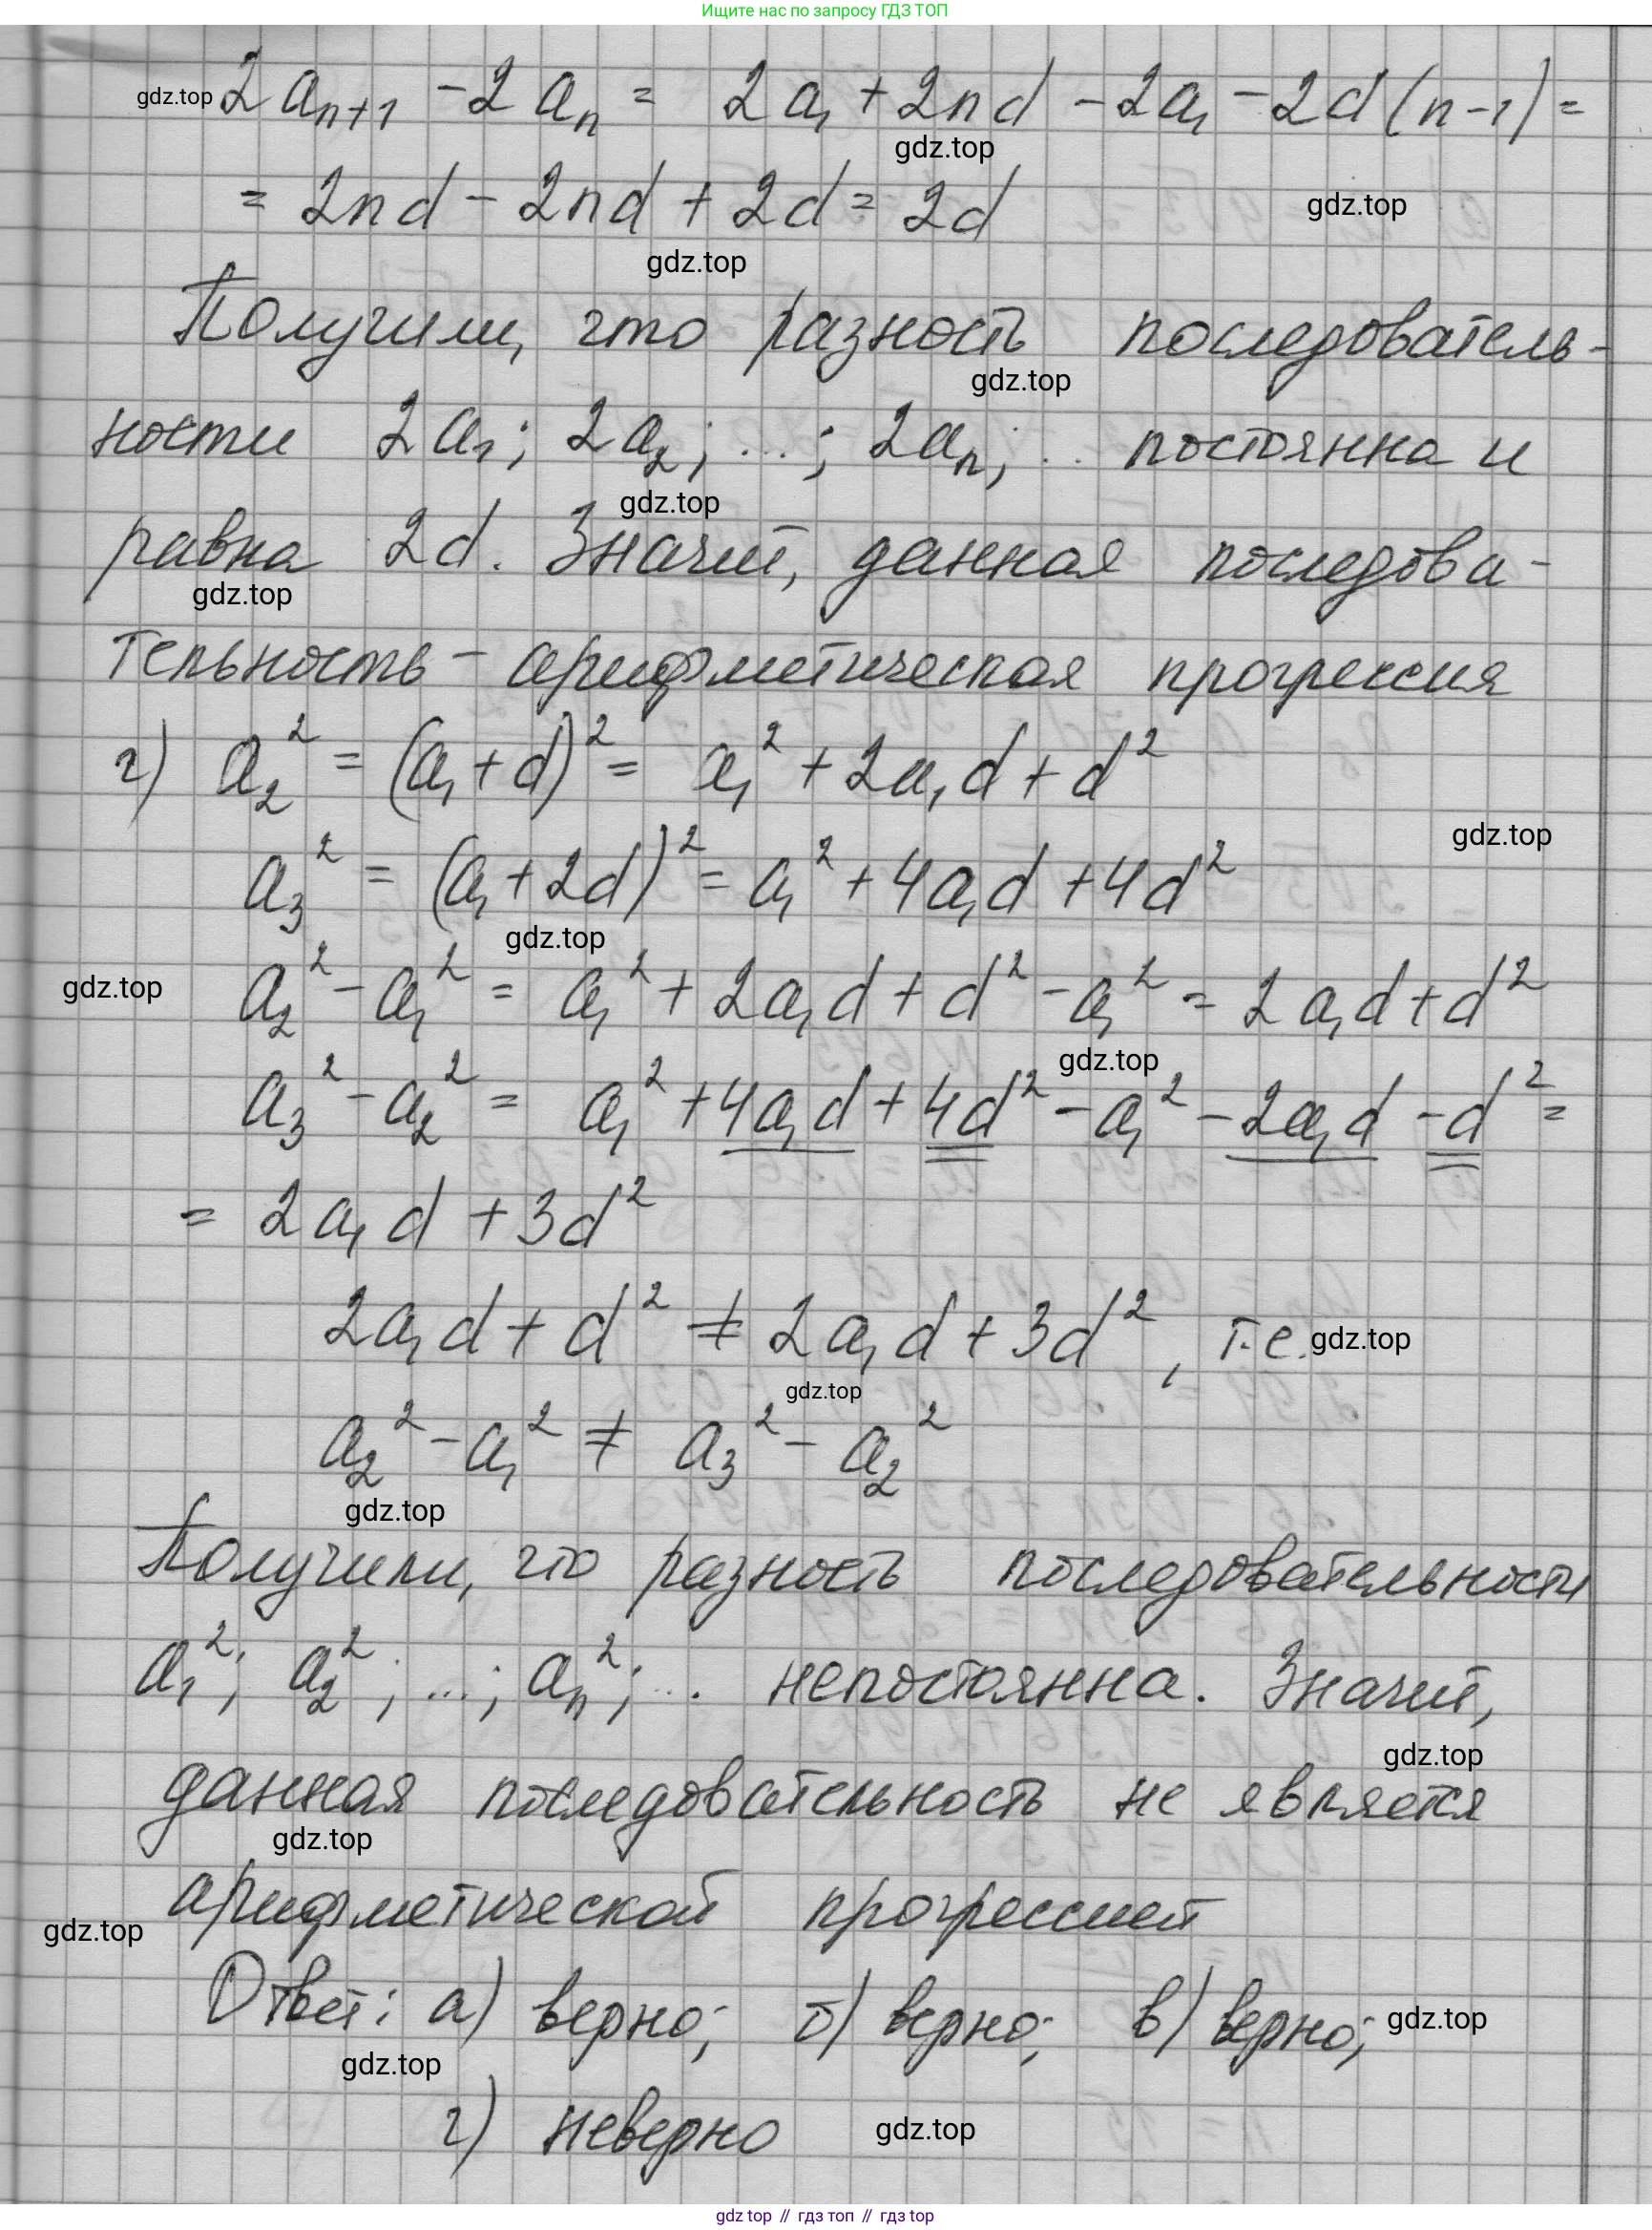 Ищите нас по запросу ГДЗ ТОП
gdz.top 2aₙ₊₁ - 2aₙ = 2a₁ + 2nd - 2a₁ - 2d(n-1) =
gdz.top
= 2nd - 2nd + 2d = 2d gdz.top
gdz.top
Получили, что разность последователь-
gdz.top
ности 2a₁; 2a₂; ...; 2aₙ; .. постоянна и
gdz.top
равна 2d. Значит, данная последова-
gdz.top
тельность - арифметическая прогрессия
г) a₂² = (a₁ + d)² = a₁² + 2a₁d + d²
gdz.top
a₃² = (a₁ + 2d)² = a₁² + 4a₁d + 4d²
gdz.top
gdz.top a₂² - a₁² = a₁² + 2a₁d + d² - a₁² = 2a₁d + d²
gdz.top
a₃² - a₂² = a₁² + 4a₁d + 4d² - a₁² - 2a₁d - d² =
= 2a₁d + 3d²
2a₁d + d² ≠ 2a₁d + 3d², т.е. gdz.top
gdz.top
a₂² - a₁² ≠ a₃² - a₂²
gdz.top
Получили, что разность последовательности
a₁²; a₂²; ...; aₙ²; .. непостоянна. Значит,
gdz.top
данная последовательность не является
gdz.top
арифметической прогрессией
gdz.top
Ответ: а) верно; б) верно; в) верно; gdz.top
gdz.top
г) неверно gdz.top
gdz top // гдз топ // гдз top